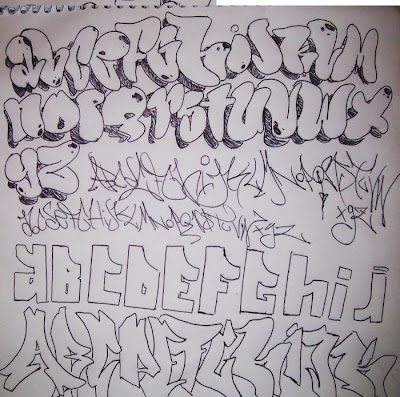 abcdEFGhiJKLM
nopqrstuvwx
yz ABCDEFGHIJKLMNOPQRSTUVW
abcdefghijklmnopqrstuvwxyz xyz
aBCDEFGhij
ABCDEFGHIJK